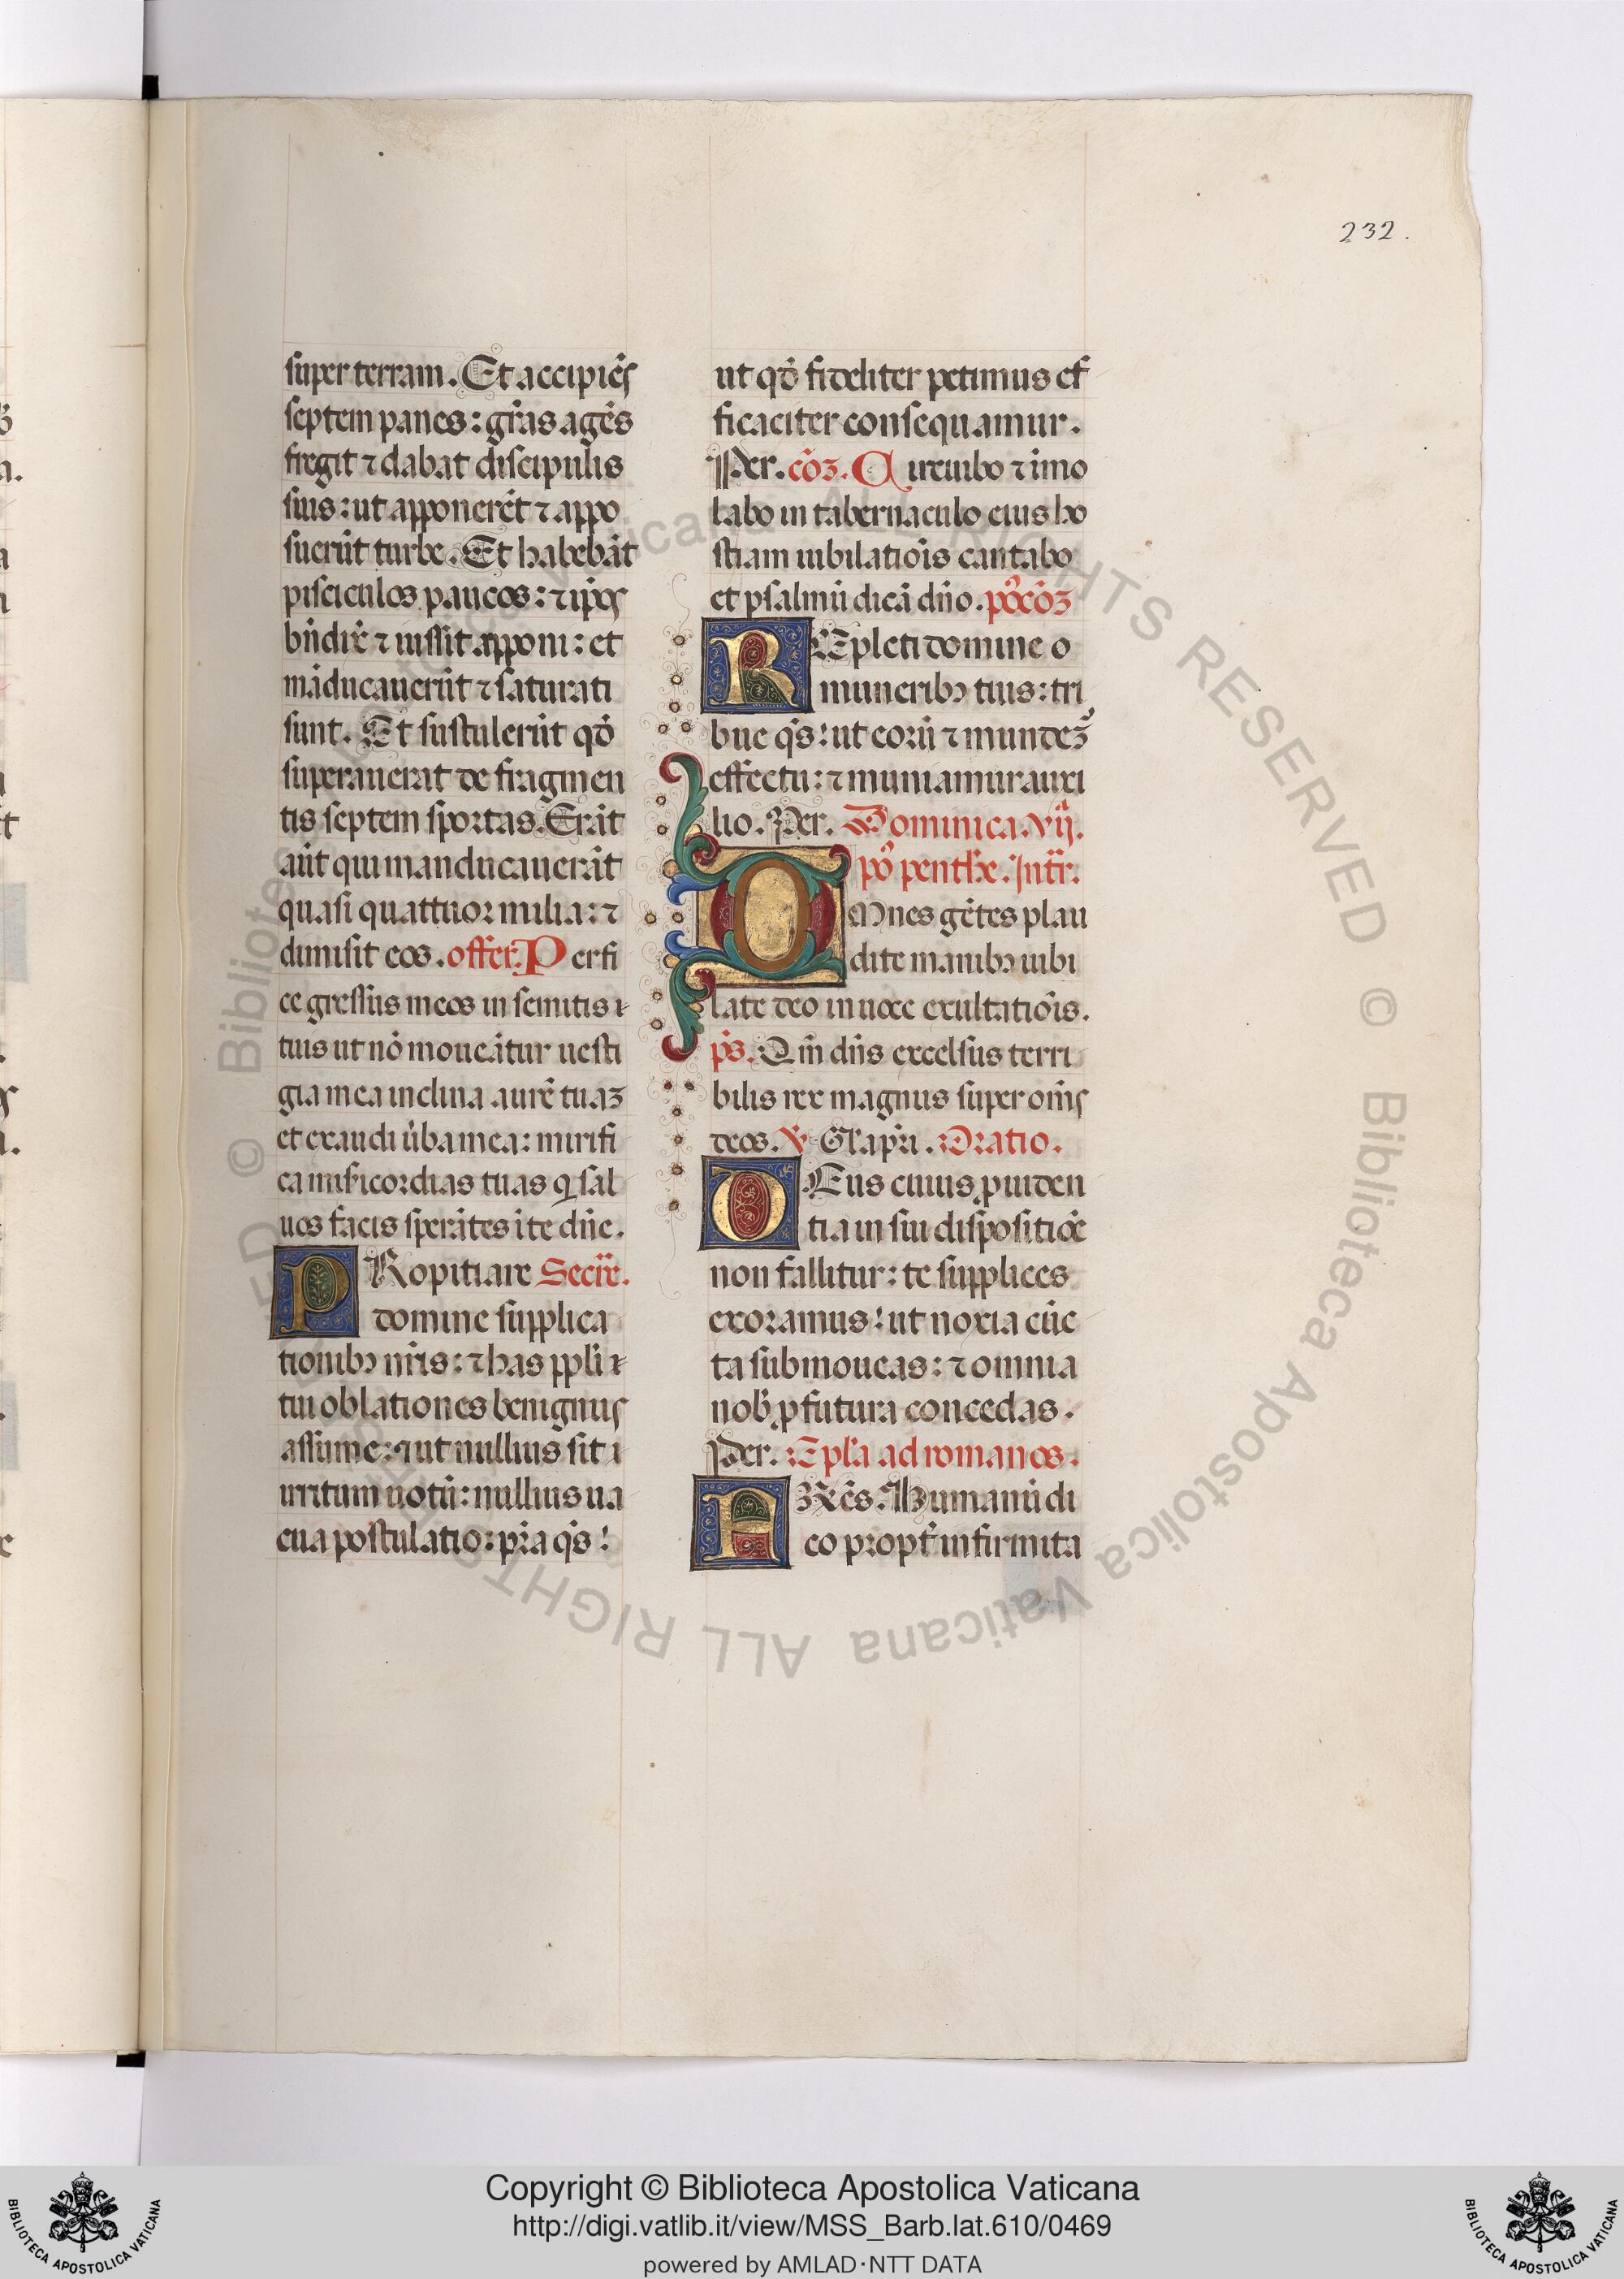 232.
super terram. Et accipiēs
septem panes: gr̄as agēs
fregit ⁊ dabat discipulis
suis: ut apponerēt ⁊ appo
suerūt turbe. Et habebāt
pisciculos paucos: ⁊ ip̄os
bn̄dix̄ ⁊ iussit apponi: et
māducauerūt ⁊ saturati
sunt. Et sustulerūt qd̄
superauerat de fragmen
tis septem sportas. Erāt
aūt qui manducauerāt
quasi quattuor milia: ⁊
dimisit eos. offer. Perfi
ce gressus meos in semitis
tuis ut nō moueātur uesti
gia mea inclina aurē tuaꝫ
et exaudi ūba mea: mirifi
ca mīsericordias tuas q sal
uos facis sperātes ī te dn̄e.
PRopitiare Secr̄e.
domine supplica
tionibꝫ nr̄is: ⁊ has ppl̄i
tui oblationes benignus
assume: ⁊ ut nullius sit i
irritum uotū: nullius ua
cua postulatio: pr̄a qs̄!
ut qd̄ fideliter petimus ef
ficaciter consequamur.
Per. cōꝫ. Circuibo ⁊ imo
labo in tabernaculo eius ho
stiam iubilatiōis cantabo
et psalmū dicā dn̄o. po᷒cōꝫ
REpleti domine
muneribꝫ tuis: tri
bue qs̄! ut eorū ⁊ mundeꝫ
effectu: ⁊ muniamur auxi
lio. Per. Dominica. vij.
po᷒ penth̄e. Intr̄.
OMnes gētes plau
dite manibꝫ iubi
late deo in uoce exultatiōis.
ps̄. Qm̄ dn̄s excelsus terri
bilis rex magnus super om̄s
deos. ℣ Gl̄a pr̄i. Oratio.
DEus cuius ꝓuiden
tia in sui dispositiōe
non fallitur: te supplices
exoramus! ut noxia cūc
ta submoueas: ⁊ omnia
nob̄ ꝓfutura concedas.
Per. Epl̄a ad romanos.
Humanū di
co propt̄ infirmita
© Biblioteca Apostolica Vaticana ALL RIGHTS RESERVED
Copyright © Biblioteca Apostolica Vaticana
http://digi.vatlib.it/view/MSS_Barb.lat.610/0469
powered by AMLAD·NTT DATA
BIBLIOTECA APOSTOLICA VATICANA
BIBLIOTECA APOSTOLICA VATICANA